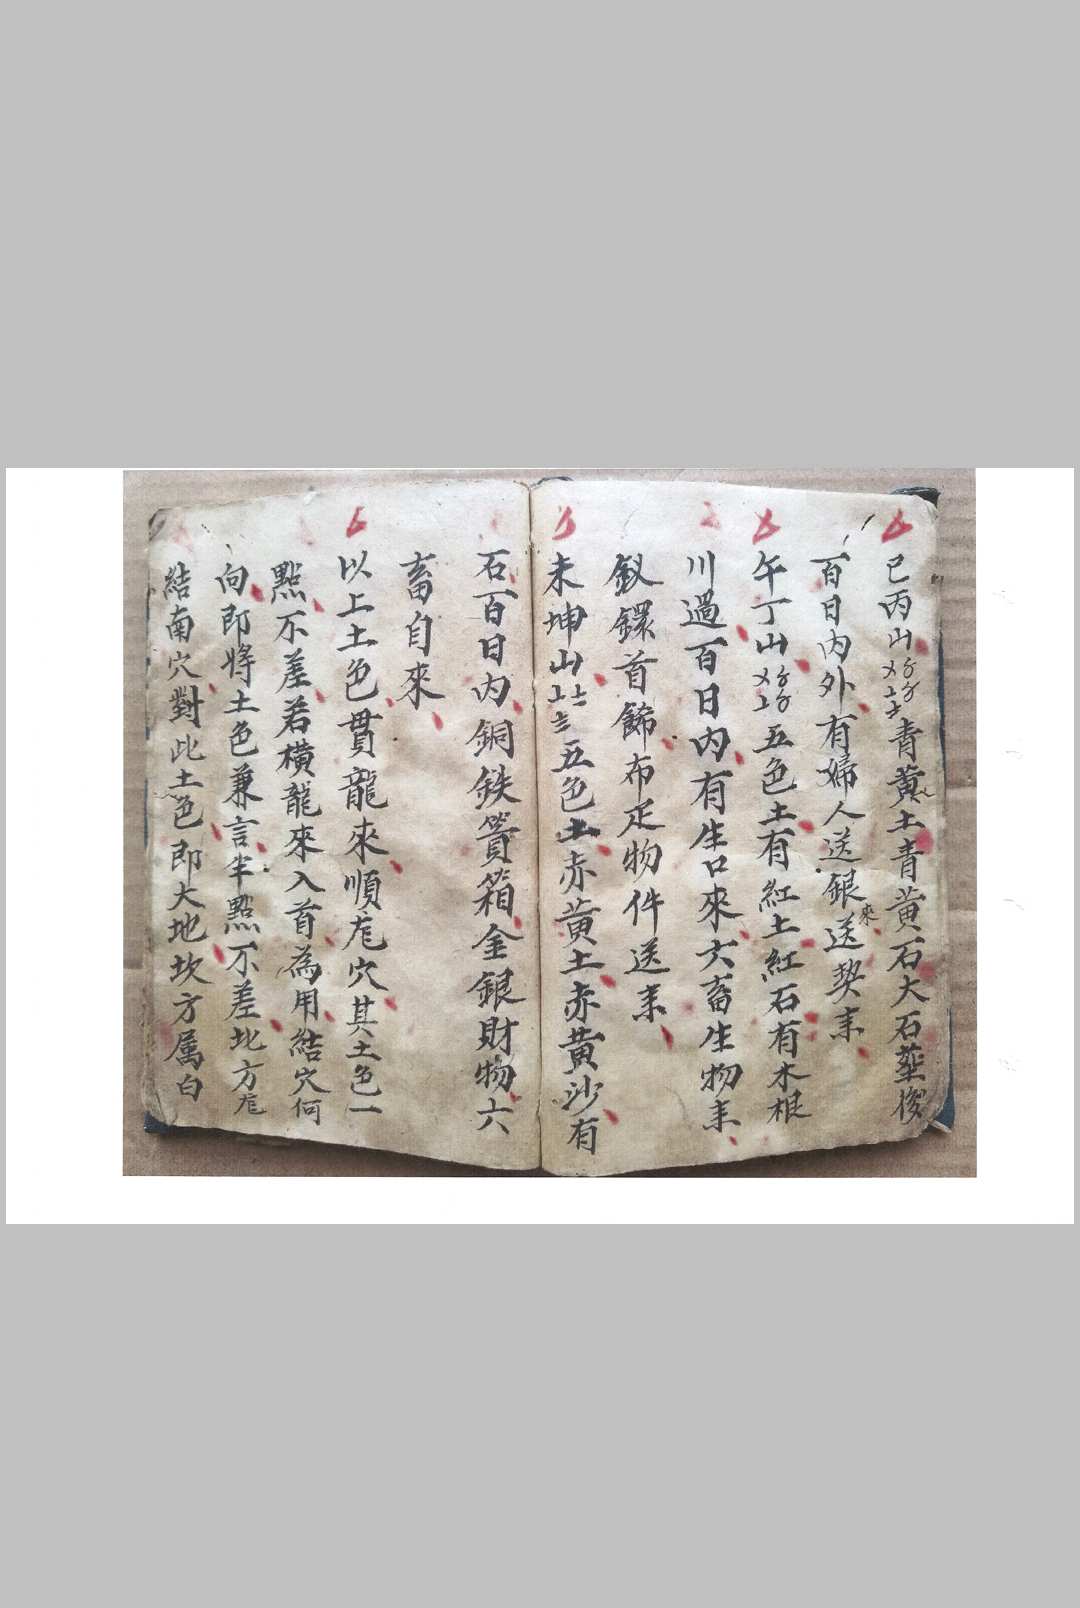 巳丙山青黃土青黃石大石塟後
百日內外有婦人送銀來送契耒
午丁山五色土有紅土紅石有木根
川過百日內有生口來六畜生物耒
釵鐶首餙布疋物件送耒
未坤山五色土赤黃土赤黃沙有
石百日內銅鉄箱金銀財物六
畜自來
以上土色貫龍來順穴其土色一
點不差若橫龍來入首為用結穴何
向即將土色兼言半點不差北方
結南穴對此土色即大地坎方属白